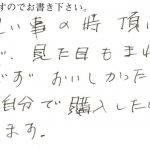 すのでお書き下さい。
い事の時頂い
で、見た目もまれ
です おいしかった
自分で購入した
ます。